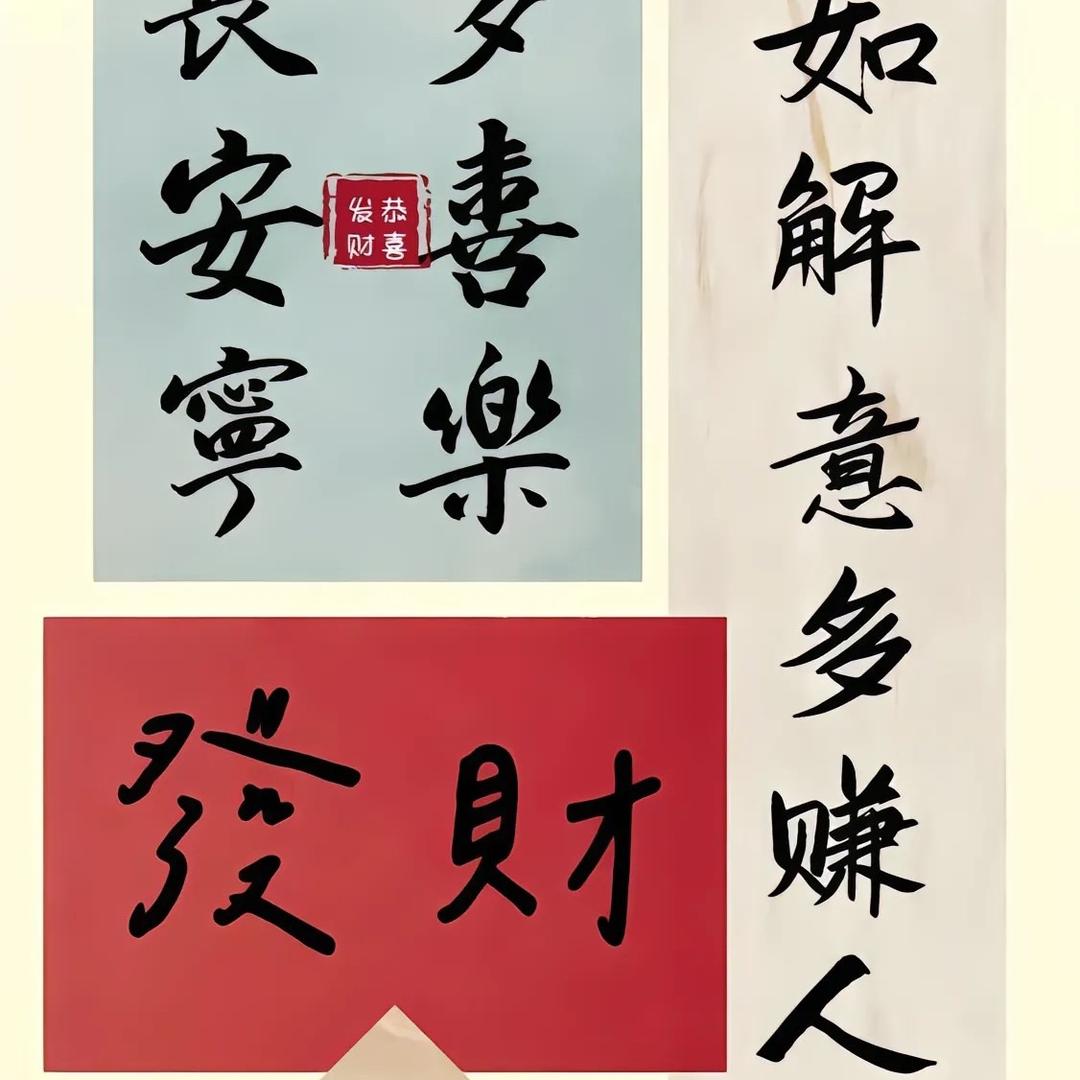 如解意多赚人
多喜樂
長安寧
恭喜
发财
發財